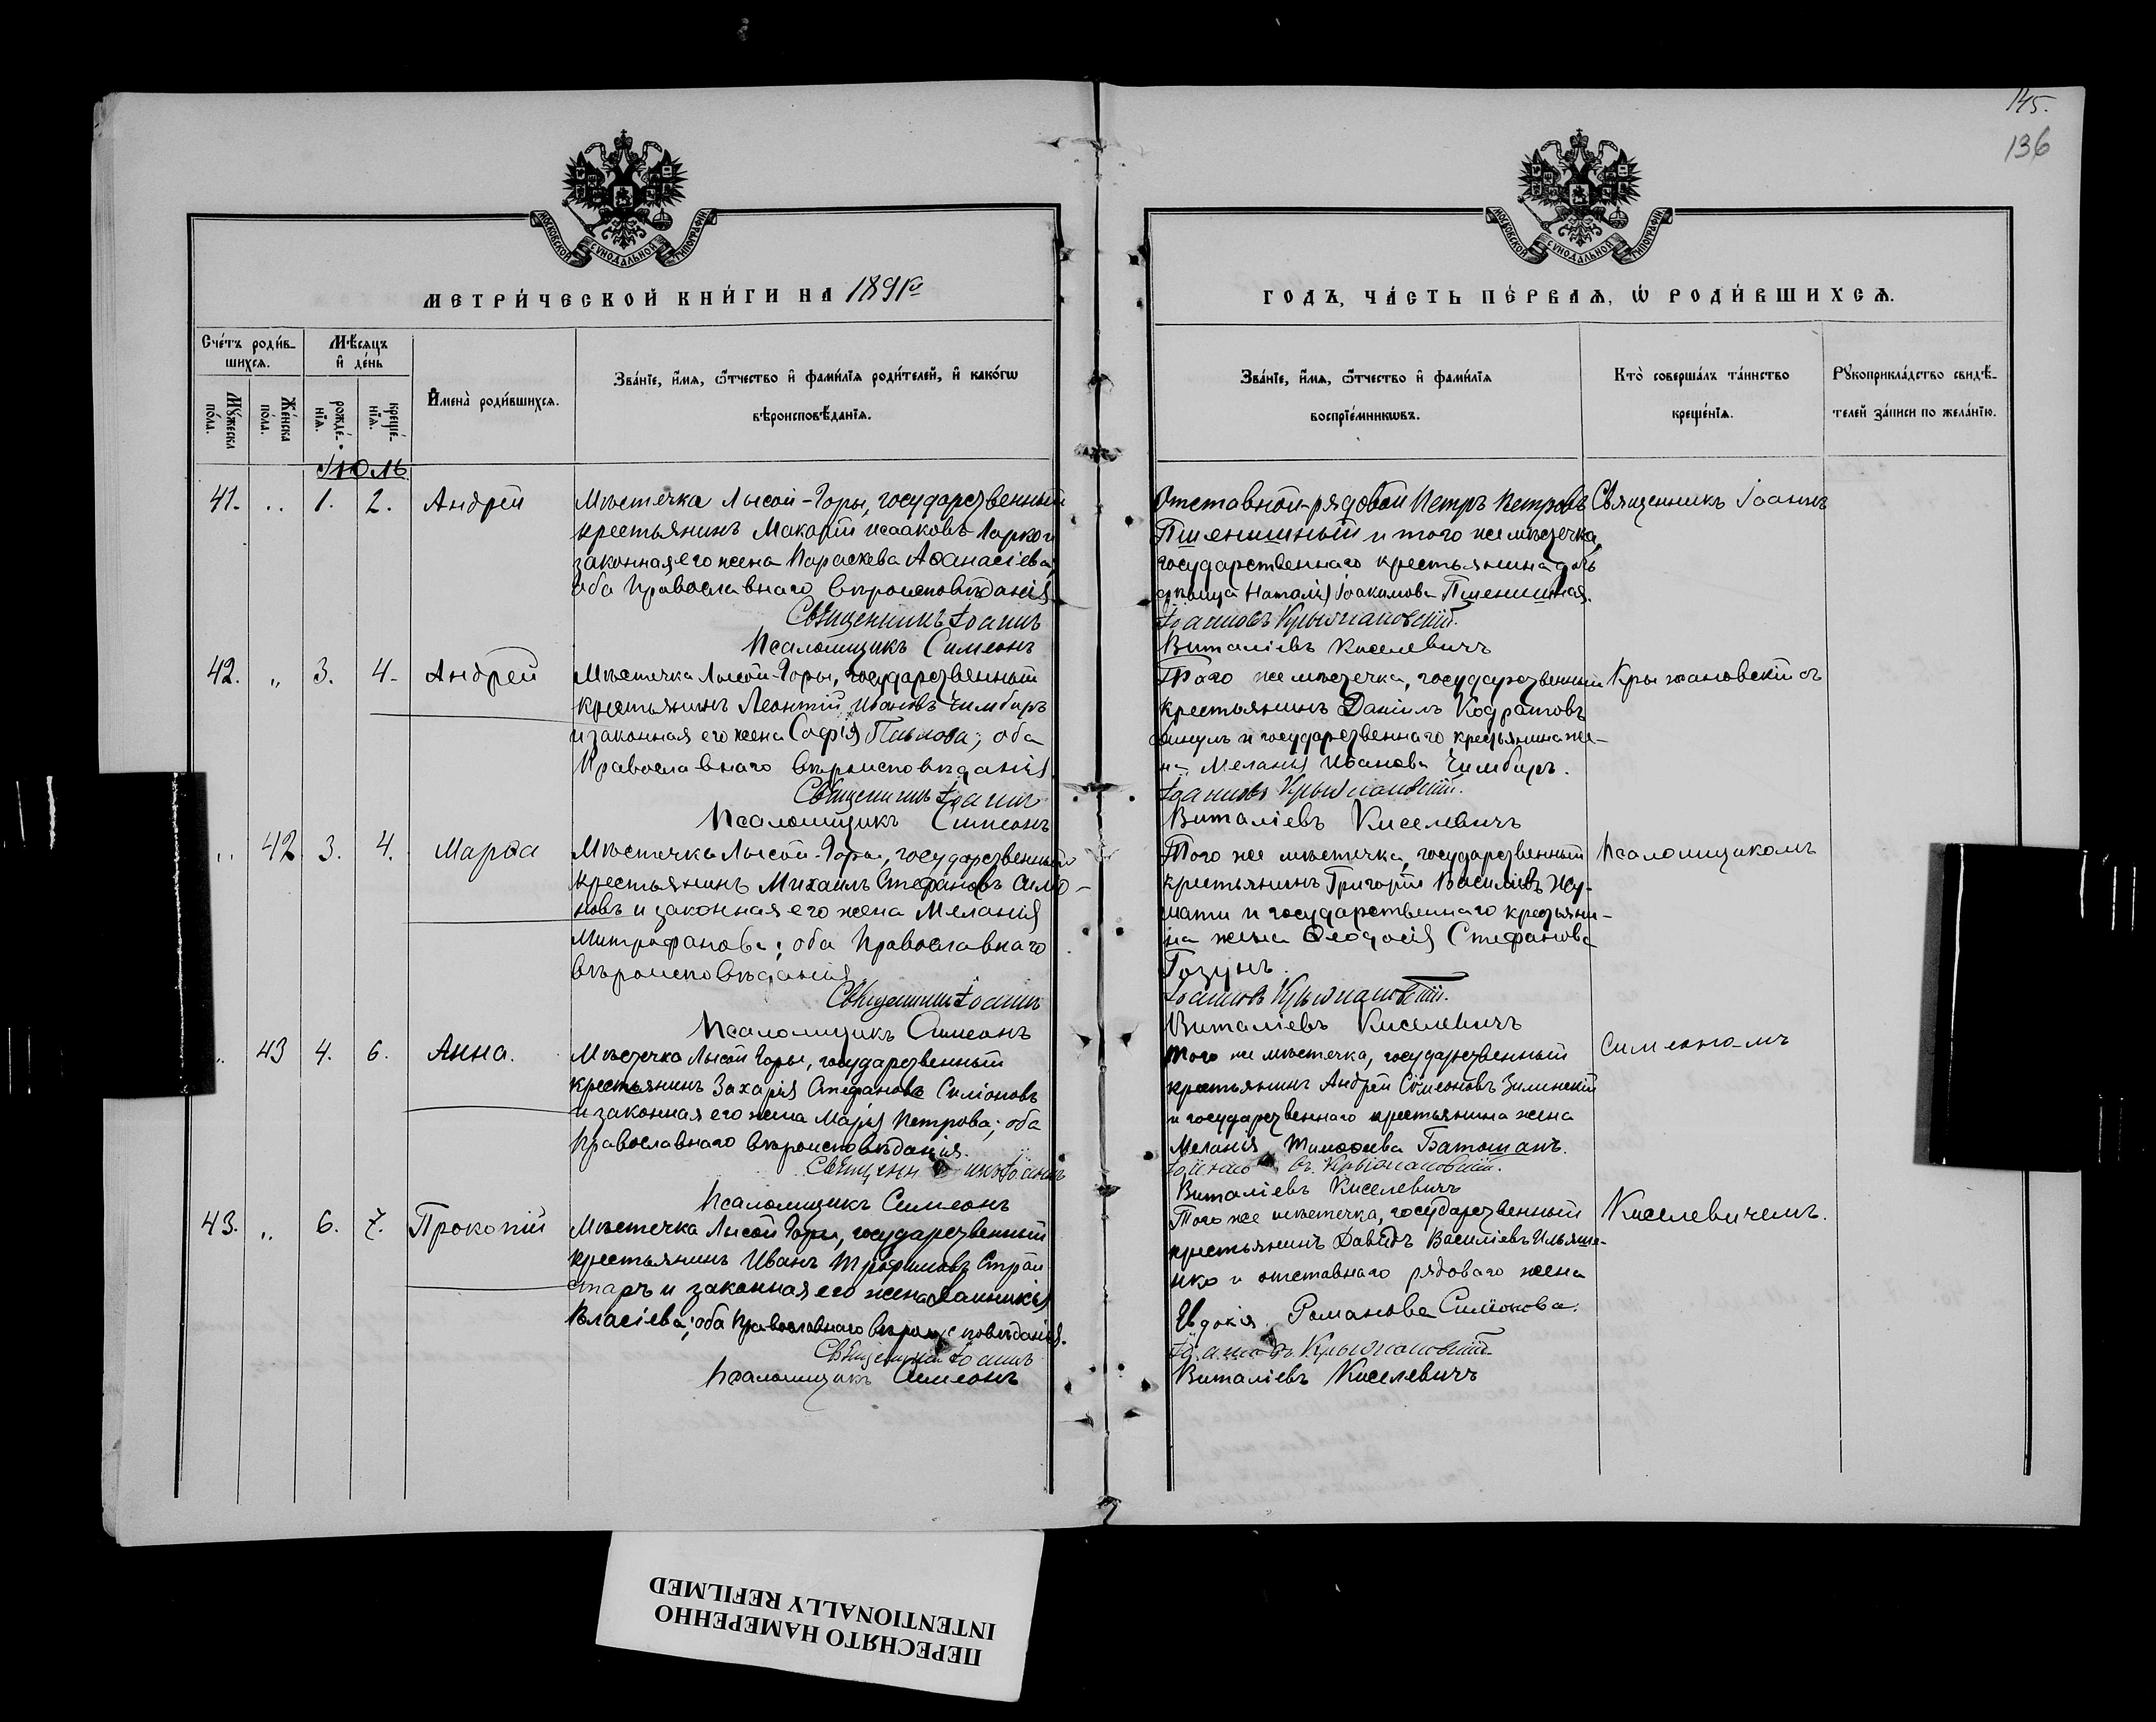 145.
136
МОСКОВСКОЙ СУНОДАЛЬНОЙ ТИПОГРАФІИ
МОСКОВСКОЙ СУНОДАЛЬНОЙ ТИПОГРАФІИ
МЕТРИ́ЧЕСКОЙ КНИ́ГИ НА 1891й
ГОДЪ, ЧА́СТЬ ПЕ́РВАѦ, Ѡ РОДИ́ВШИХСѦ.
Сче́тъ роди́в-
шихсѧ.
Мꙋжеска по́ла.
Же́нска по́ла.
Мѣ́сѧцъ
и҆ де́нь
рожде́-
нїѧ.
креще́-
нїѧ.
И҆мена̀ роди́вшихсѧ.
Зва́нїе, и҆́мѧ, ѻ҆́тчество и҆ фами́лїѧ роди́телей, и҆ како́гѡ
вѣроисповѣ́данїѧ.
Зва́нїе, и҆́мѧ, ѻ҆́тчество и҆ фами́лїѧ
воспрїе́мникѡвъ.
Кто̀ соверша́лъ та́инство
креще́нїѧ.
Рꙋкоприкла́дство свидѣ́-
телей за́писи по жела́нїю.
Іюль
41. .. 1. 2. Андрей
Мѣстечка Лысой-Горы, государственный
крестьянинъ Макарій Исааковъ Ларко и
законная его жена Параскева Аѳанасіева;
оба Православнаго вѣроисповѣданія
Священникъ Іоаннъ
Псаломщикъ Симеонъ
Отставной рядовой Петръ Петровъ
Пшенишный и того же мѣстечка,
государственнаго крестьянина дочь
дѣвица Наталія Іоакимова Пшенишная.
Іоанновъ Крыжановскій.
Виталіевъ Киселевичъ
Священникъ Іоаннъ
42. „ 3. 4. Андрей
Мѣстечка Лысой-Горы, государственный
крестьянинъ Леонтій Ивановъ Чимбиръ
и законная его жена Софія Павлова; оба
Православнаго вѣроисповѣданія
Священникъ Іоаннъ
Псаломщикъ Симеонъ
Того же мѣстечка, государственный
крестьянинъ Даніилъ Кодратовъ
и государственнаго крестьянина же-
на Меланія Иванова Чимбиръ.
Іоанновъ Крыжановскій.
Виталіевъ Киселевичъ
Крыжановскій съ
.. 42. 3. 4. Марѳа
Мѣстечка Лысой-Горы, государственный
крестьянинъ Михаилъ Стефановъ Симо-
новъ и законная его жена Меланія
Митрофанова; оба Православнаго
вѣроисповѣданія
Священникъ Іоаннъ
Псаломщикъ Симеонъ
Того же мѣстечка, государственный
крестьянинъ Григорій Василіевъ
и государственнаго крестьяни-
на жена Ѳеодосія Стефанова
Гозунъ.
Іоанновъ Крыжановскій.
Виталіевъ Киселевичъ
Псаломщикомъ
.. 43 4. 6. Анна.
Мѣстечка Лысой Горы, государственный
крестьянинъ Захарія Стефановъ Симоновъ
и законная его жена Марія Петрова; оба
Православнаго вѣроисповѣданія.
Священникъ Іоаннъ
Псаломщикъ Симеонъ
Того же мѣстечка, государственный
крестьянинъ Андрей Симеоновъ Зилинскій
и государственнаго крестьянина жена
Меланія Тимоѳеева Батошанъ.
Іоанновъ Крыжановскій.
Виталіевъ Киселевичъ
Симеономъ
43. „ 6. 7. Прокопій
Мѣстечка Лысой Горы, государственный
крестьянинъ Иванъ Трофимовъ
и законная его жена Іанникія
Власіева; оба Православнаго вѣроисповѣданія.
Священникъ Іоаннъ
Псаломщикъ Симеонъ
Того же мѣстечка, государственный
крестьянинъ Давидъ Василіевъ Ильяше-
нко и отставнаго рядоваго жена
Евдокія Романова Симонова.
Іоанновъ Крыжановскій
Виталіевъ Киселевичъ
Киселевичемъ.
ПЕРЕСНЯТО НАМЕРЕННО
INTENTIONALLY REFILMED